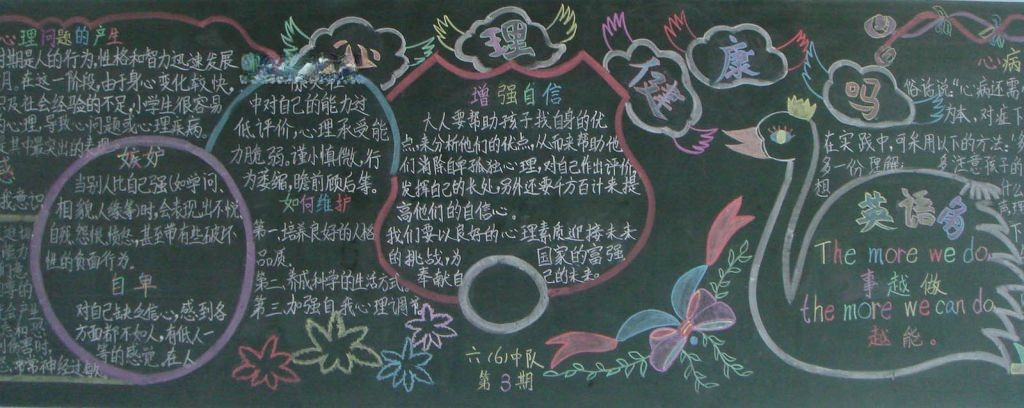 心理问题的产生
期是人的行为,性格和智力迅速发展
月。在这一阶段,由于身心变化较快,
社会经验的不足,小学生很容易
心理,导致心问题或心理疾病。
其中最突出的
嫉妒
当别人比自己强(如学问、
相貌、人缘等)时,会表现出不悦
自残、怨恨、愤怒,甚至带有些破坏
性的负面行为。
自卑
对自己缺乏信心,感到各
方面都不如人,有低人一
等的感觉,在人
心理健康吗
中对自己的能力过
低评价,心理承受能
力脆弱。谨小慎微、行
为萎缩,瞻前顾后等。
如何维护
第一.培养良好的人格
品质。
第二.养成科学的生活方式。
第三.加强自我心理调节
增强自信
大人要帮助孩子找自身的优
点,来分析他们的优点,从而来帮助他
们消除自卑孤独心理,对自己作出评价,
发挥自己的长处,另外还要千方百计来提
高他们的自信心。
我们要以良好的心理素质迎接未来
的挑战,为国家的富强
奉献自己的未来。
六(6)中队
第3期
心病
俗话说“心病还需
为本,对症下
在实践中,可采用以下的方法:
多一份理解: 多注意孩子的
想
英语角
The more we do
事越做
the more we can do
越能。